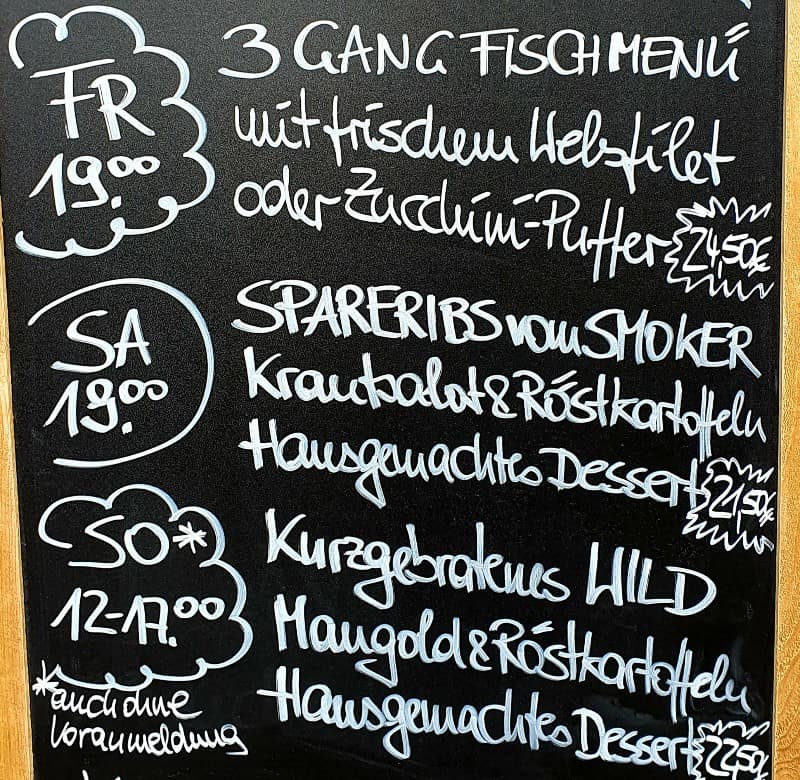 FR
19.00
3 GANG FISCHMENÜ
mit frischem Welsfilet
oder Zucchini-Puffer 24,50€
SA
19.00
SPARERIBS vom SMOKER
Krautsalat & Röstkartoffeln
Hausgemachtes Dessert 21,50€
SO*
12-17.00
Kurzgebratenes WILD
Mangold & Röstkartoffeln
Hausgemachtes Dessert 22,50
*auch ohne
Voranmeldung